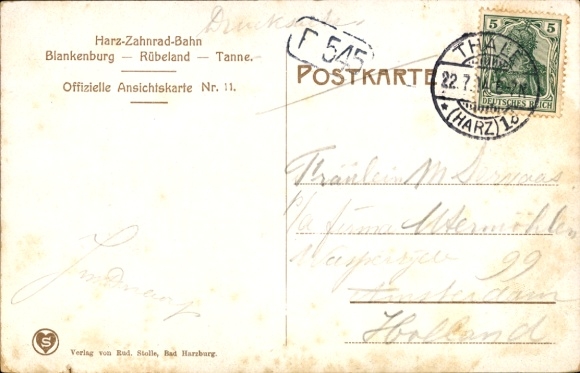 Drucksache
Harz-Zahnrad-Bahn
Blankenburg — Rübeland — Tanne.
Offizielle Ansichtskarte Nr. 11.
F 545
POSTKARTE
5 5
DEUTSCHES REICH
THALE
22.7.
* (HARZ) 1
Fräulein M
p/a firma Utermöhlen
99
Amsterdam
Holland
S
Verlag von Rud. Stolle, Bad Harzburg.